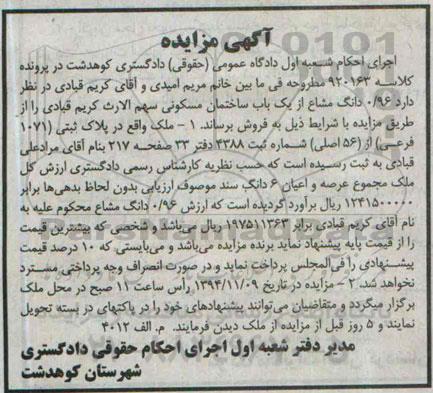 آگهی مزایده
اجرای احکام شعبه اول دادگاه عمومی (حقوقی) دادگستری کوهدشت در پرونده
کلاسه ۹۲۰۱۶۳ مطروحه فی ما بین خانم مریم امیدی و آقای کریم قبادی در نظر
دارد ۰/۹۶ دانگ مشاع از یک باب ساختمان مسکونی سهم الارث کریم قبادی را از
طریق مزایده با شرایط ذیل به فروش برساند. ۱ – ملک واقع در پلاک ثبتی (۱۰۷۱
فرعی) از (۵۶ اصلی) شماره ثبت ۴۳۸۸ دفتر ۳۳ صفحه ۲۱۷ بنام آقای مرادعلی
قبادی به ثبت رسیده است که حسب نظریه کارشناس رسمی دادگستری ارزش کل
ملک مجموع عرصه و اعیان ۶ دانگ سند موصوف ارزیابی بدون لحاظ بدهی‌ها برابر
۱۲۴۱۵۰۰۰۰۰ ریال برآورد گردیده است که ارزش ۰/۹۶ دانگ مشاع محکوم علیه به
نام آقای کریم قبادی برابر ۱۹۷۵۱۱۳۶۳ ریال می‌باشد و شخصی که بیشترین قیمت
را از قیمت پایه پیشنهاد نماید برنده مزایده می‌باشد و می‌بایستی که ۱۰ درصد قیمت
پیشنهادی را فی‌المجلس پرداخت نماید و در صورت انصراف وجه پرداختی مسترد
نخواهد شد. ۲ – مزایده در تاریخ ۱۳۹۴/۱۱/۰۹ رأس ساعت ۱۱ صبح در محل ملک
برگزار میگردد و متقاضیان می‌توانند پیشنهادهای خود را در پاکتهای در بسته تحویل
نمایند و ۵ روز قبل از مزایده از ملک دیدن فرمایند. م. الف ۴۰۱۲
مدیر دفتر شعبه اول اجرای احکام حقوقی دادگستری
شهرستان کوهدشت